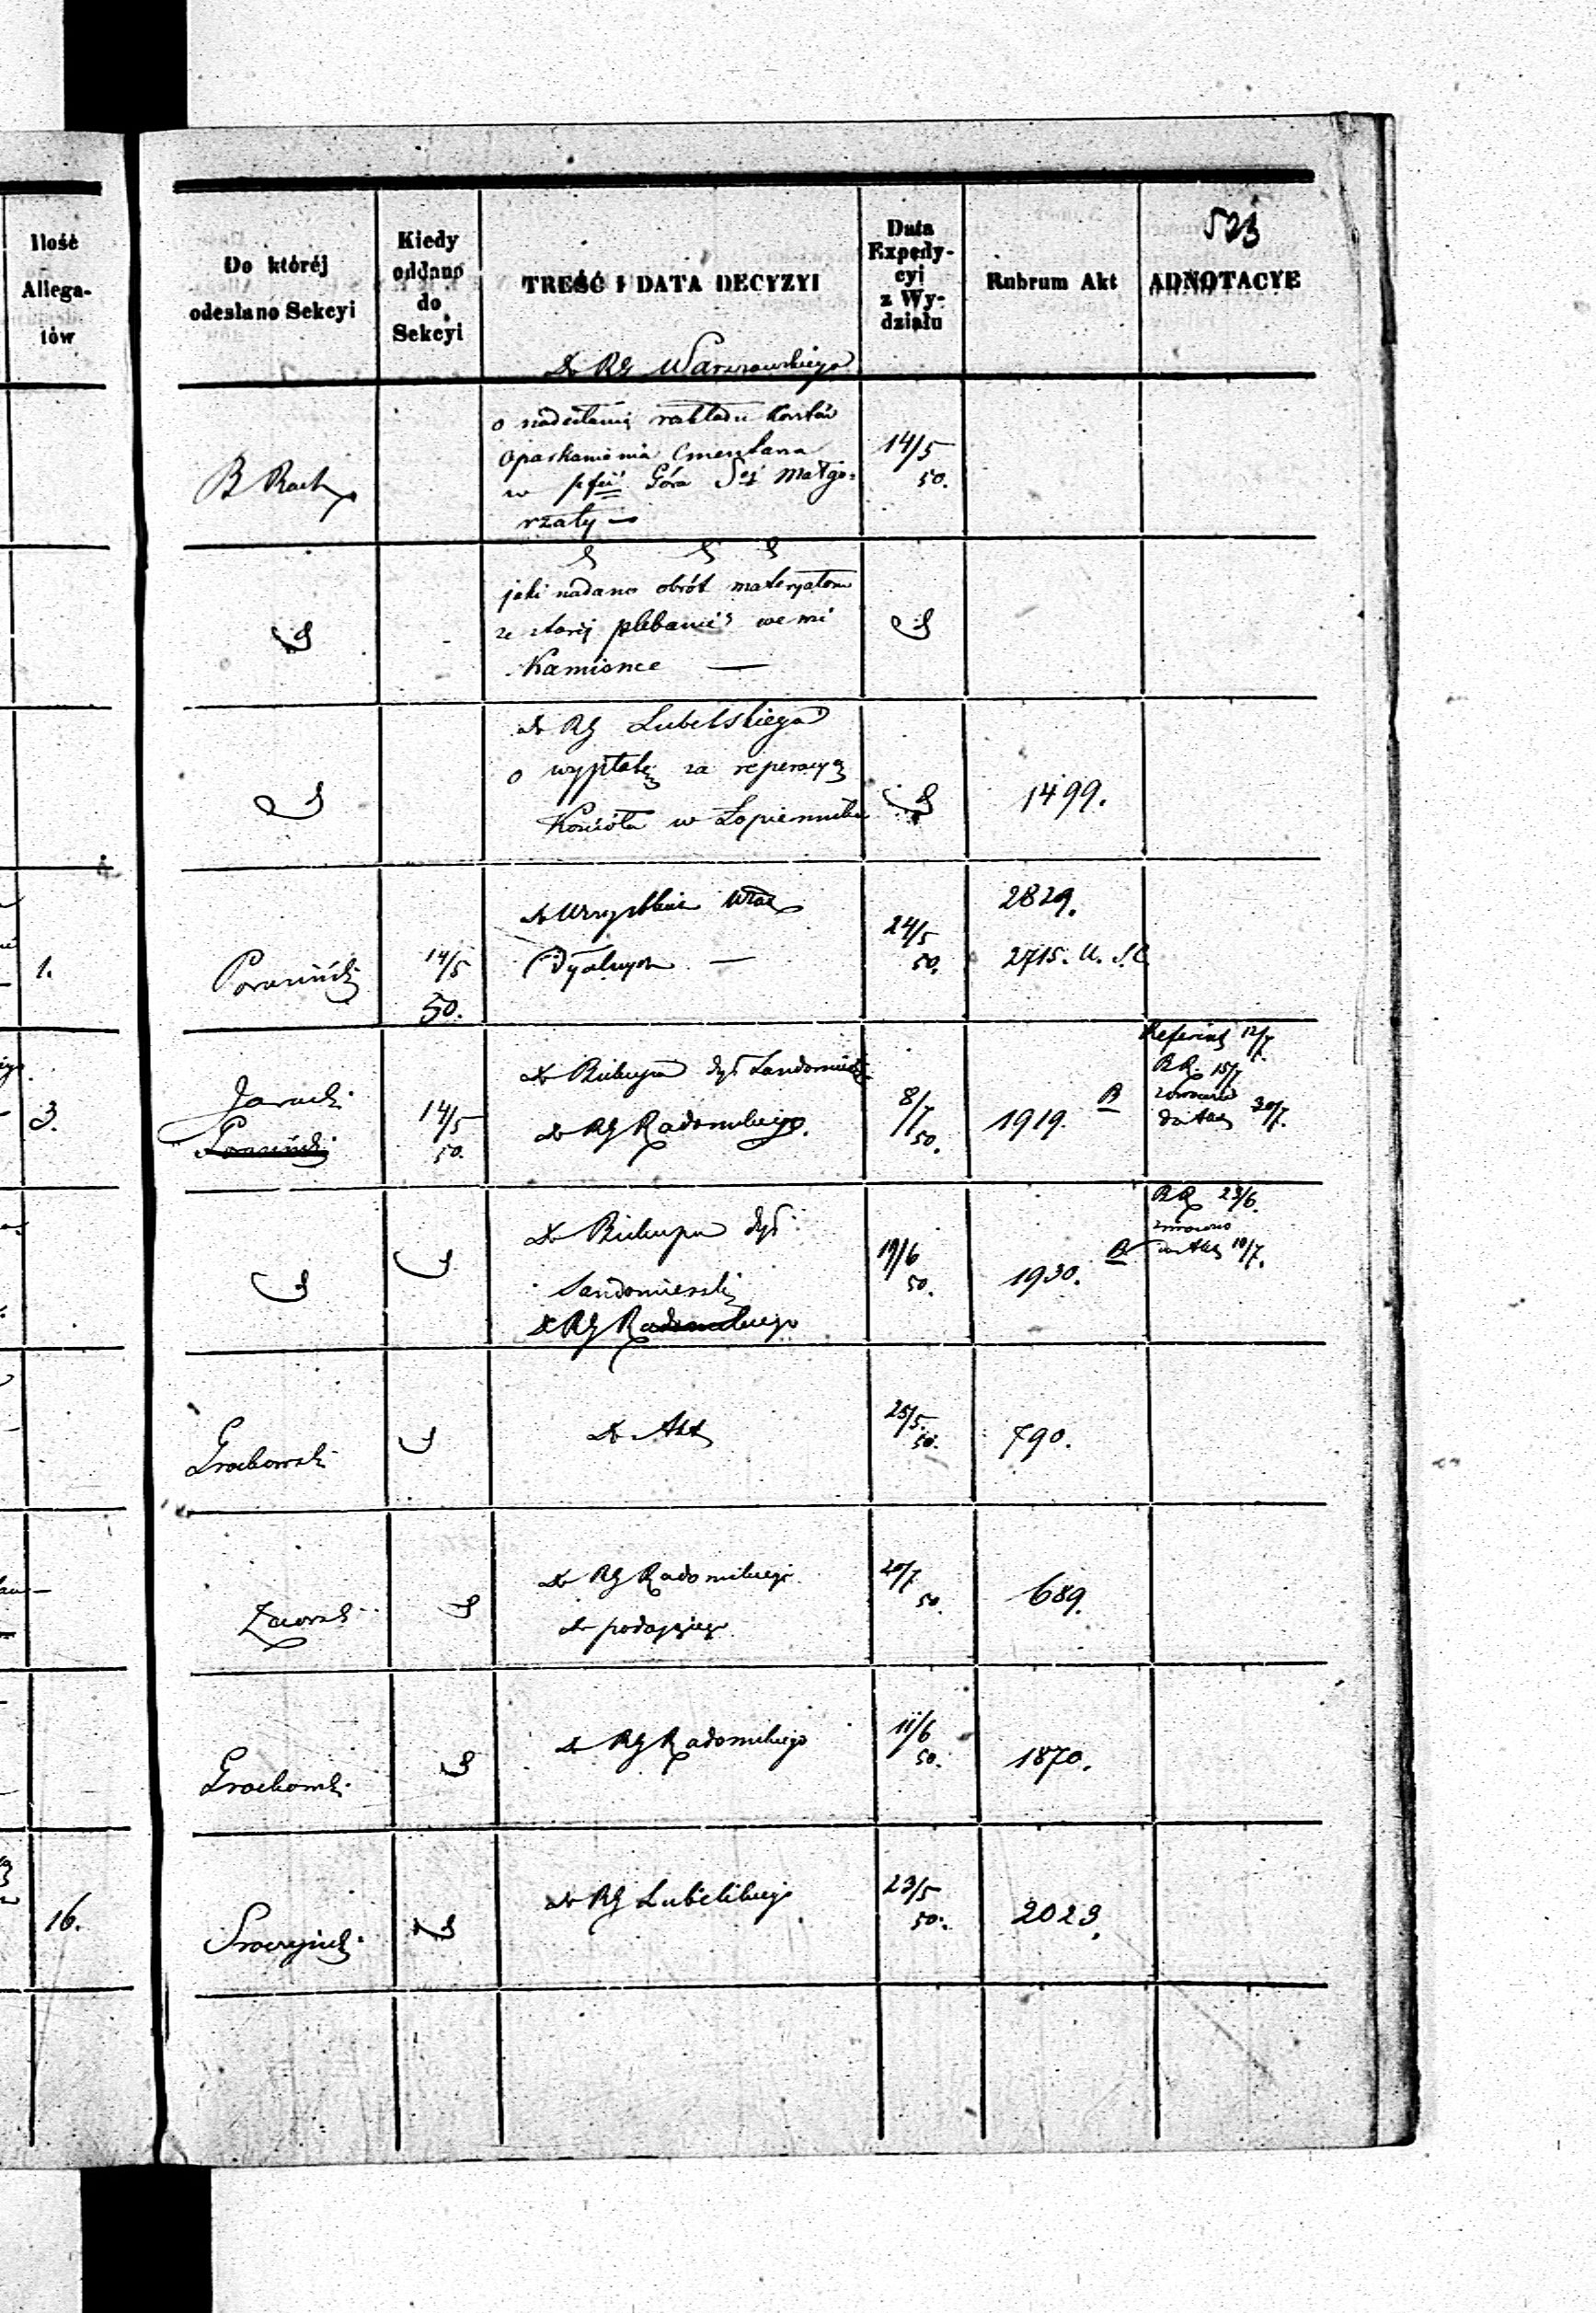 523
Ilość
Allega-
tów
Do któréj
odesłano Sekcyi
Kiedy
oddano
do
Sekcyi
TREŚĆ I DATA DECYZYI
Data
Expedy-
cyi
z Wy-
działu
Rubrum Akt
ADNOTACYE
do RG Warszawskiego
B Rach
o nadesłanie rozkładu kosztów
oparkanienia Cmentarza
w Góra Małgo-
rzaty —
14/5
50.
jaki nadano obrót materyałom
ze starej plebanii we wsi
Kamionce —
do RG Lubelskiego
o wypłatę za reperacyą
Kościoła w Łopienniku
1499.
1.
14/5
50.
do Wszystkich Władz
24/5
50.
2829.
2715.
3.
Jaracki
14/5
50.
do Biskupa Dyś Sandomierski
do RG Radomskiego.
8/7
50.
1919.
B
Referent 12/7
RR. 15/7
zwrócono
do Akt 30/7.
do Biskupa dyś
Sandomierski
do RG Radomskiego
19/6
50.
1930.
B
RR 23/6.
zwrócono
do Akt 10/7.
Grochowski
do Akt
25/5
50.
790.
do RG Radomskiego
do podającego
20/7
50.
689.
Grochowski
do RG Radomskiego
11/6
50.
1870.
16.
do RG Lubelskiego
23/5
50.
2023.